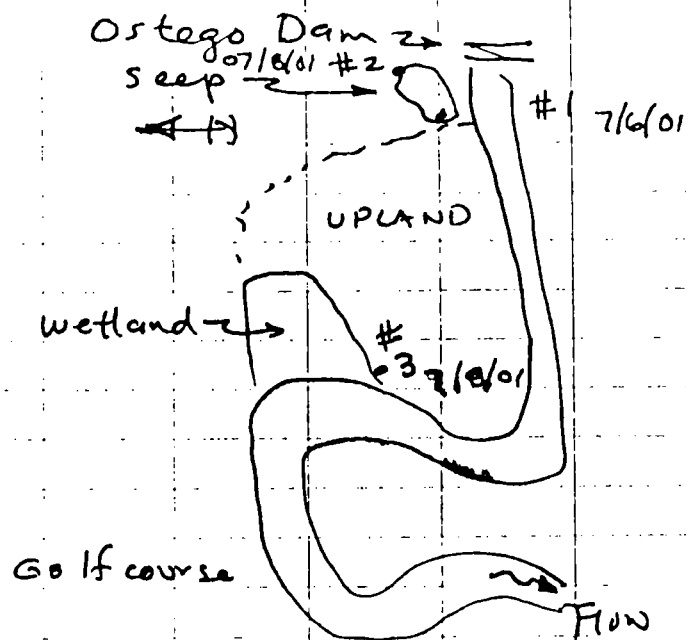 Ostego Dam
07/8/01 #2
seep
#1 7/6/01
UPLAND
wetland
#3 7/8/01
Golf course
Flow